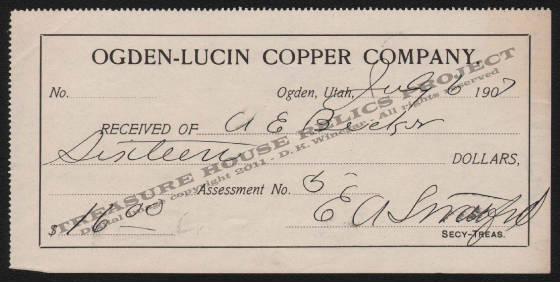 OGDEN-LUCIN COPPER COMPANY.
No. Ogden, Utah, July 6 1907
RECEIVED OF A E
Sixteen DOLLARS,
Assessment No. 5
$16.00 E A
SECY-TREAS.
TREASURE HOUSE RELICS PROJECT
Digital image copyright 2011 - D. K. Winslow - All rights reserved